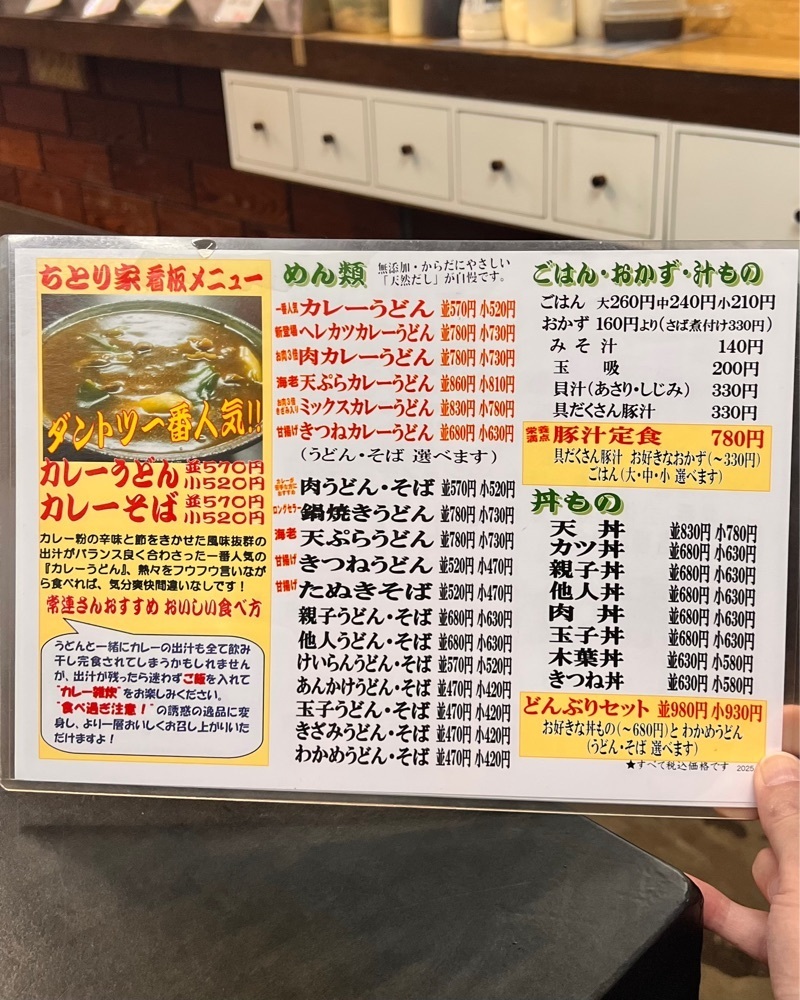 ちとり家 看板メニュー
ダントツ一番人気!!
カレーうどん 並570円 小520円
カレーそば 並570円 小520円
カレー粉の辛味と節をきかせた風味抜群の
出汁がバランス良く合わさった一番人気の
『カレーうどん』、熱々をフウフウ言いなが
ら食べれば、気分爽快間違いなしです！
常連さんおすすめ おいしい食べ方
うどんと一緒にカレーの出汁も全て飲み
干し完食されてしまうかもしれません
が、出汁が残ったら迷わずご飯を入れて
"カレー雑炊"をお楽しみください。
"食べ過ぎ注意！"の誘惑の逸品に変
身し、より一層おいしくお召し上がりいた
だけますよ！
めん類 無添加・からだにやさしい
「天然だし」が自慢です。
一番人気 カレーうどん 並570円 小520円
新登場 ヘレカツカレーうどん 並780円 小730円
お肉3倍 肉カレーうどん 並780円 小730円
海老 天ぷらカレーうどん 並860円 小810円
お肉3倍 きざみ入り ミックスカレーうどん 並830円 小780円
甘揚げ きつねカレーうどん 並680円 小630円
(うどん・そば 選べます)
カレーが苦手な方におすすめ 肉うどん・そば 並570円 小520円
ロングセラー 鍋焼きうどん 並780円 小730円
海老 天ぷらうどん 並780円 小730円
甘揚げ きつねうどん 並520円 小470円
甘揚げ たぬきそば 並520円 小470円
親子うどん・そば 並680円 小630円
他人うどん・そば 並680円 小630円
けいらんうどん・そば 並570円 小520円
あんかけうどん・そば 並470円 小420円
玉子うどん・そば 並470円 小420円
きざみうどん・そば 並470円 小420円
わかめうどん・そば 並470円 小420円
ごはん・おかず・汁もの
ごはん 大260円 中240円 小210円
おかず 160円より(さば煮付け330円)
みそ汁 140円
玉吸 200円
貝汁(あさり・しじみ) 330円
具だくさん豚汁 330円
栄養満点 豚汁定食 780円
具だくさん豚汁 お好きなおかず(〜330円)
ごはん(大・中・小 選べます)
丼もの
天丼 並830円 小780円
カツ丼 並680円 小630円
親子丼 並680円 小630円
他人丼 並680円 小630円
肉丼 並680円 小630円
玉子丼 並680円 小630円
木葉丼 並630円 小580円
きつね丼 並630円 小580円
どんぶりセット 並980円 小930円
お好きな丼もの(〜680円)と わかめうどん
(うどん・そば 選べます)
★すべて税込価格です 2025